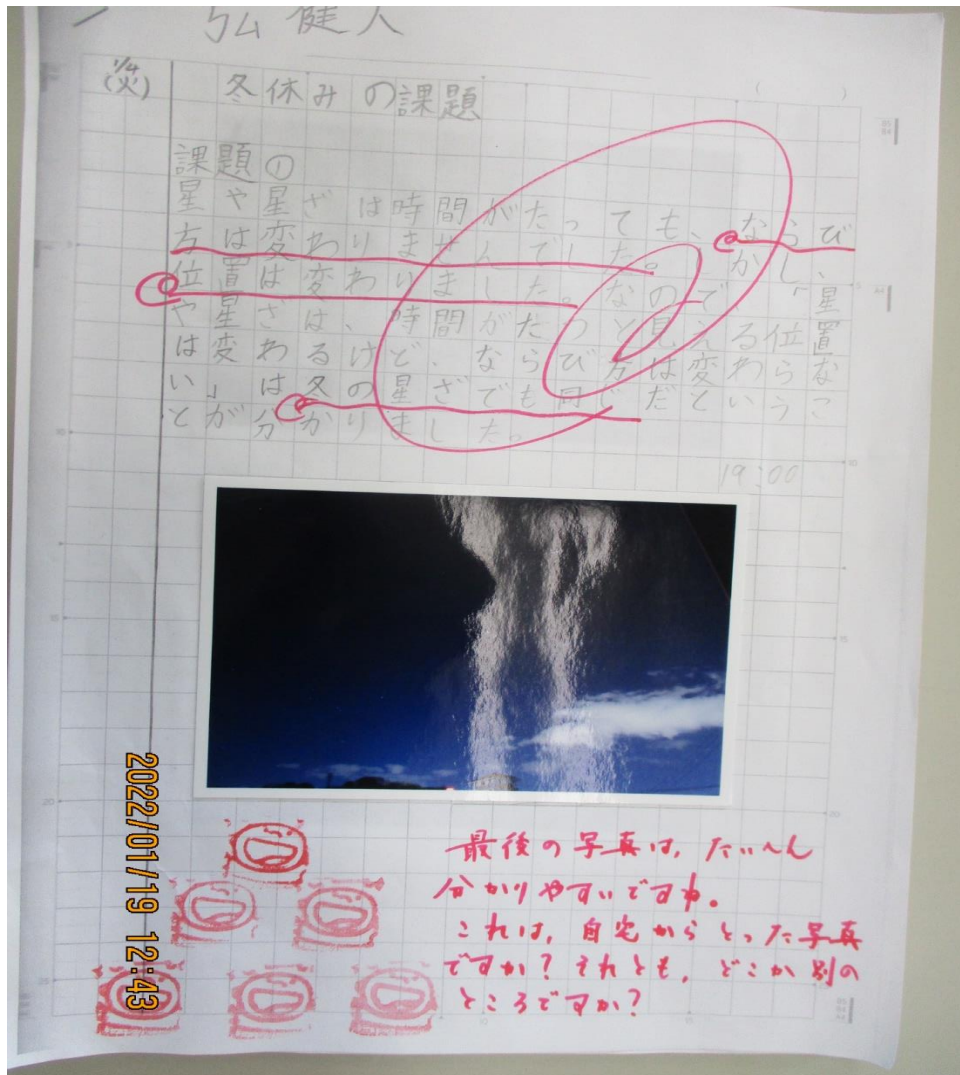 弘 健人
1/4
(火)
冬休みの課題
課題①
星や星ざは時間がたっても、ならび
方は変わりませんでした。しかし、
位置は変わりました。なので、「星
や星ざは、時間がたつと見える位置
は変わるけど、ならび方は変わらな
い」は冬の星ざでも同じだというこ
とが分かりました。
19:00
最後の写真は、たいへん
分かりやすいですね。
これは、自宅からとった写真
ですか?それとも、どこか別の
ところですか?
2022/01/19 12:43